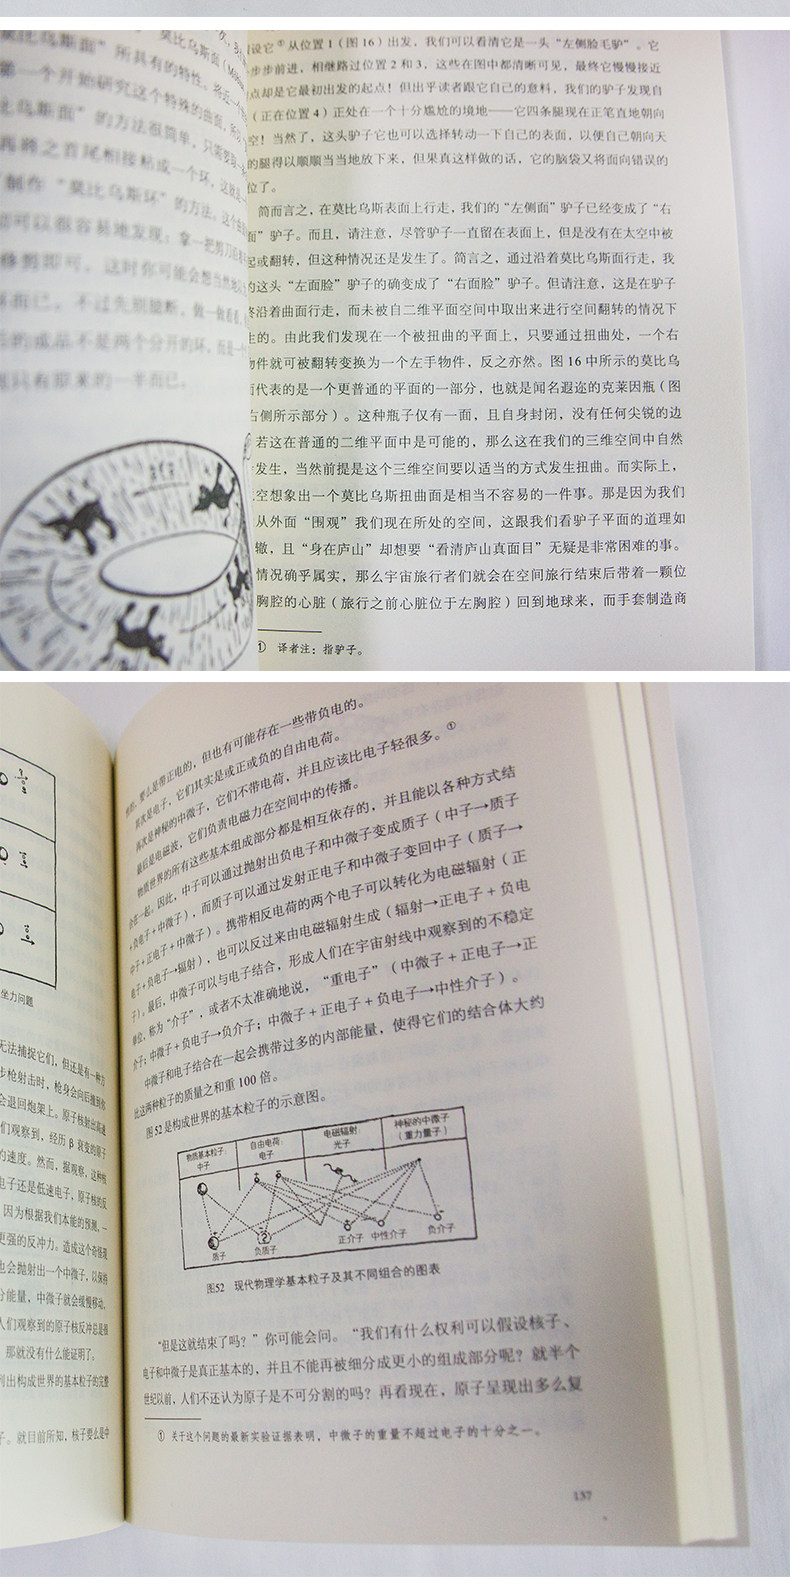 莫比乌斯面”所具有的特性。
第一个开始研究这个特殊的曲面，
比乌斯面”的方法很简单，只需要
再将之首尾相接粘成一个环，这就是
制作“莫比乌斯环”的方法。这个曲面
即可以很容易地发现：拿一把剪刀沿着
修剪即可。这时你可能会想当然地
而已。不过先别擅断，做一做看看，
后的成品不是两个分开的环，而是一个
只有原来的一半而已。
设它①从位置1（图16）出发，我们可以看清它是一头“左侧脸毛驴”。它
步步前进，相继路过位置2和3，这些在图中都清晰可见，最终它慢慢接近
点却是它最初出发的起点！但出乎读者跟它自己的意料，我们的驴子发现自
（正在位置4）正处在一个十分尴尬的境地——它四条腿现在正笔直地朝向
空！当然了，这头驴子它也可以选择转动一下自己的表面，以便自己朝向天
的腿得以顺顺当当地放下来，但果真这样做的话，它的脑袋又将面向错误的
位了。
简而言之，在莫比乌斯表面上行走，我们的“左侧面”驴子已经变成了“右
面”驴子。而且，请注意，尽管驴子一直留在表面上，但是没有在太空中被
起或翻转，但这种情况还是发生了。简言之，通过沿着莫比乌斯面行走，我
的这头“左面脸”驴子的确变成了“右面脸”驴子。但请注意，这是在驴子
终沿着曲面行走，而未被自二维平面空间中取出来进行空间翻转的情况下
生的。由此我们发现在一个被扭曲的平面上，只要通过扭曲处，一个右
物件就可被翻转变换为一个左手物件，反之亦然。图16中所示的莫比乌
面代表的是一个更普通的平面的一部分，也就是闻名遐迩的克莱因瓶（图
右侧所示部分）。这种瓶子仅有一面，且自身封闭，没有任何尖锐的边
若这在普通的二维平面中是可能的，那么这在我们的三维空间中自然
发生，当然前提是这个三维空间要以适当的方式发生扭曲。而实际上，
空想象出一个莫比乌斯扭曲面是相当不容易的一件事。那是因为我们
从外面“围观”我们现在所处的空间，这跟我们看驴子平面的道理如
辙，且“身在庐山”却想要“看清庐山真面目”无疑是非常困难的事。
情况确乎属实，那么宇宙旅行者们就会在空间旅行结束后带着一颗位
胸腔的心脏（旅行之前心脏位于左胸腔）回到地球来，而手套制造商
① 译者注：指驴子。
坐力问题
无法捕捉它们，但还是有一种方
步枪射击时，枪身会向后撞到你
会退回炮架上。原子核射出高速
们观察到，经历β衰变的原子
的速度。然而，据观察，这种核
电子还是低速电子，原子核的反
因为根据我们本能的预测，一
更强的反冲力。造成这个奇怪现
也会抛射出一个中微子，以保持
分能量，中微子就会缓慢移动，
人们观察到的原子核反冲总是很
那就没有什么能证明了。
列出构成世界的基本粒子的完整
子。就目前所知，核子要么是中
性的，要么是带正电的，但也有可能存在一些带负电的。
其次是电子，它们其实是或正或负的自由电荷。
再次是神秘的中微子，它们不带电荷，并且应该比电子轻很多。①
最后是电磁波，它们负责电磁力在空间中的传播。
物质世界的所有这些基本组成部分都是相互依存的，并且能以各种方式结
合在一起。因此，中子可以通过抛射出负电子和中微子变成质子（中子→质子
＋负电子＋中微子），而质子可以通过发射正电子和中微子变回中子（质子→
中子＋正电子＋中微子）。携带相反电荷的两个电子可以转化为电磁辐射（正
电子＋负电子→辐射），也可以反过来由电磁辐射生成（辐射→正电子＋负电
子）。最后，中微子可以与电子结合，形成人们在宇宙射线中观察到的不稳定
单位，称为“介子”，或者不太准确地说，“重电子”（中微子＋正电子→正
介子；中微子＋负电子→负介子；中微子＋正电子＋负电子→中性介子）。
中微子和电子结合在一起会携带过多的内部能量，使得它们的结合体大约
比这两种粒子的质量之和重100倍。
图52是构成世界的基本粒子的示意图。
物质基本粒子： 自由电荷： 电磁辐射： 神秘的中微子
中子 电子 光子 （重力量子）
质子 负质子 正介子 中性介子 负介子
图52 现代物理学基本粒子及其不同组合的图表
“但是这就结束了吗？”你可能会问。“我们有什么权利可以假设核子、
电子和中微子是真正基本的，并且不能再被细分成更小的组成部分呢？就半个
世纪以前，人们不还认为原子是不可分割的吗？再看现在，原子呈现出多么复
① 关于这个问题的最新实验证据表明，中微子的重量不超过电子的十分之一。
137